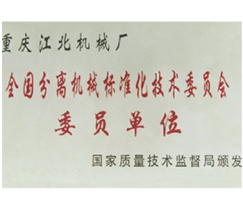 重庆江北机械厂
全国分离机械标准化技术委员会
委员单位
国家质量技术监督局颁发